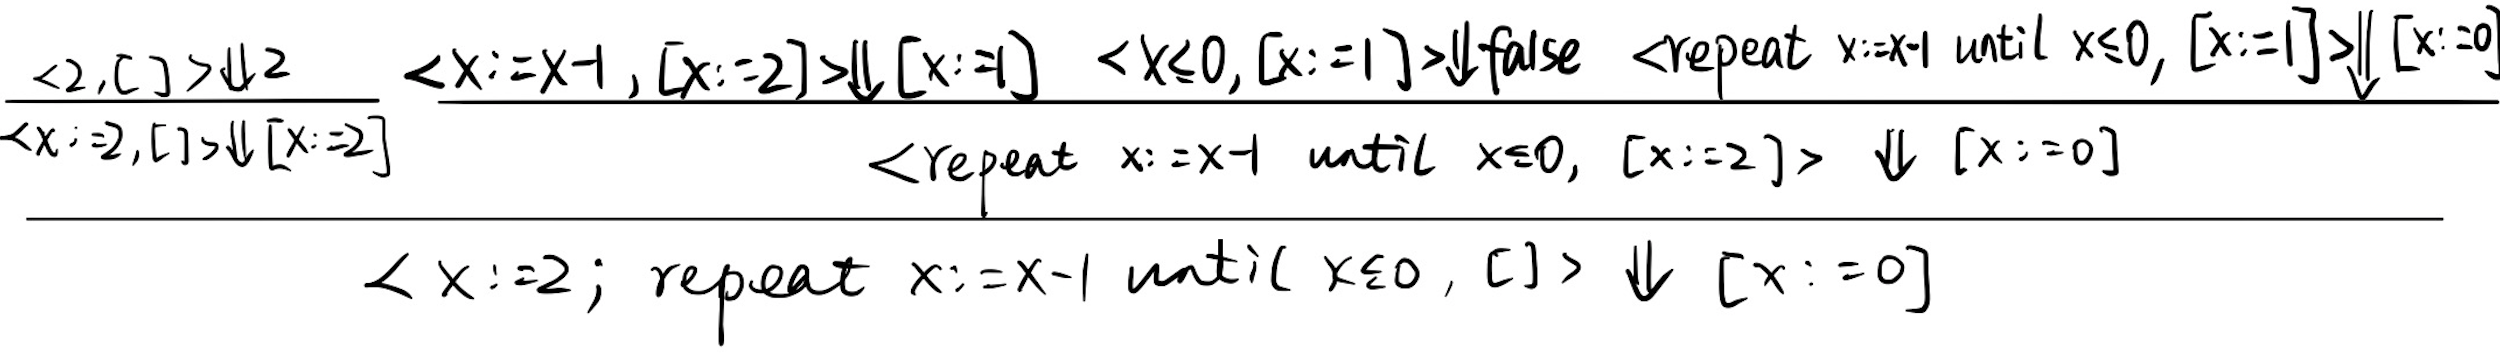 <2,[]>⇓2 <x:=x-1,[x:=2]>⇓[x:=1] <x≤0,[x:=1]>⇓false <repeat x:=x-1 until x≤0,[x:=1]>⇓[x:=0]
<x:=2,[]>⇓[x:=2] <repeat x:=x-1 until x≤0, [x:=2]> ⇓ [x:=0]
<x:=2; repeat x:=x-1 until x≤0,[]> ⇓ [x:=0]